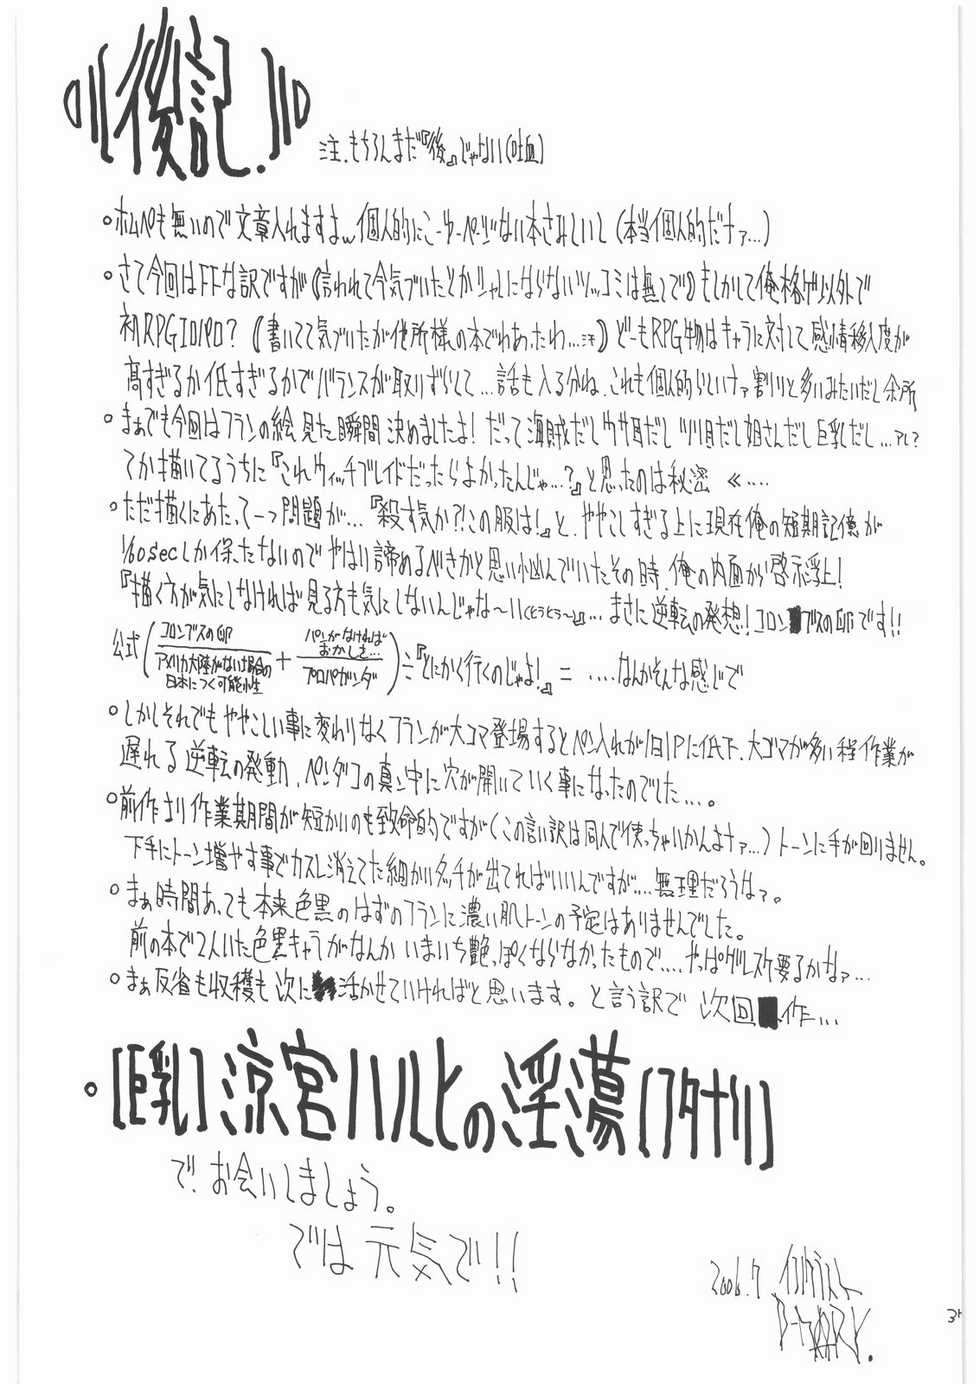 後記.
注.もちろんまだ『後』じゃない(吐血)
○ホムペも無いので文章入れますよ、個人的にこーゆーページない本さみしいし(本当個人的だナァ…)
○さて今回はFFな訳ですが《言われて今気づいたとかシャレにならないツッコミは無しで》もしかして俺格ゲ以外で
初RPGエロパロ?《書いてて気づいたが他所様の本でわあったわ…汗》どーもRPG物はキャラに対して感情移入度が
高すぎるか低すぎるかでバランスが取りずらくて…話も入る分ね、これも個人的らしいナァ割りと多いみたいだし余所
○まぁでも今回はフランの絵見た瞬間決めましたよ!だって海賊だしウサ耳だしツリ目だし姐さんだし巨乳だし…アレ?
てか描いてるうちに『これウィッチブレイドだったらよかったんじゃ…?』と思ったのは秘密《….
○ただ描くにあたって一つ問題が…『殺す気か?!この服は!』と、ややこしすぎる上に現在俺の短期記憶が
1/60secしか保たないのでやはり諦めるべきかと思い悩んでいたその時、俺の内面から啓示浮上!
『描く方が気にしなければ見る方も気にしないんじゃな〜い(どうどう〜)』…まさに逆転の発想!コロンブスの卵です!!
公式(コロンブスの卵/アメリカ大陸がない場合の日本につく可能性+パンがなければおかしを…/プロパガンダ)÷『とにかく行くのじゃよ!』=….なんかそんな感じで
○しかしそれでもややこしい事に変わりなくフランが大コマ登場するとペン入れが1日1Pに低下、大ゴマが多い程作業が
遅れる逆転の発動、ペンダコの真ン中に穴が開いていく事になったのでした….。
○前作より作業期間が短かいのも致命的ですが(この言い訳は同人で使っちゃいかんよナァ…)トーンに手が回りません。
下手にトーン増やす事でカスレ消えてた細かいタッチが出てればいいんですが….無理だろうなァ。
○まぁ時間あっても本来色黒のはずのフランに濃い肌トーンの予定はありませんでした。
前の本で2人いた色黒キャラがなんかいまいち艶っぽくならなかったもので….やっぱグレスケ要るかなァ…
○まぁ反省も収穫も次に活かせていければと思います。と言う訳で次回作…
○[巨乳]涼宮ハルヒの淫蕩[フタナリ]
で.お会いしましょう。
では元気で!!
2006.7.